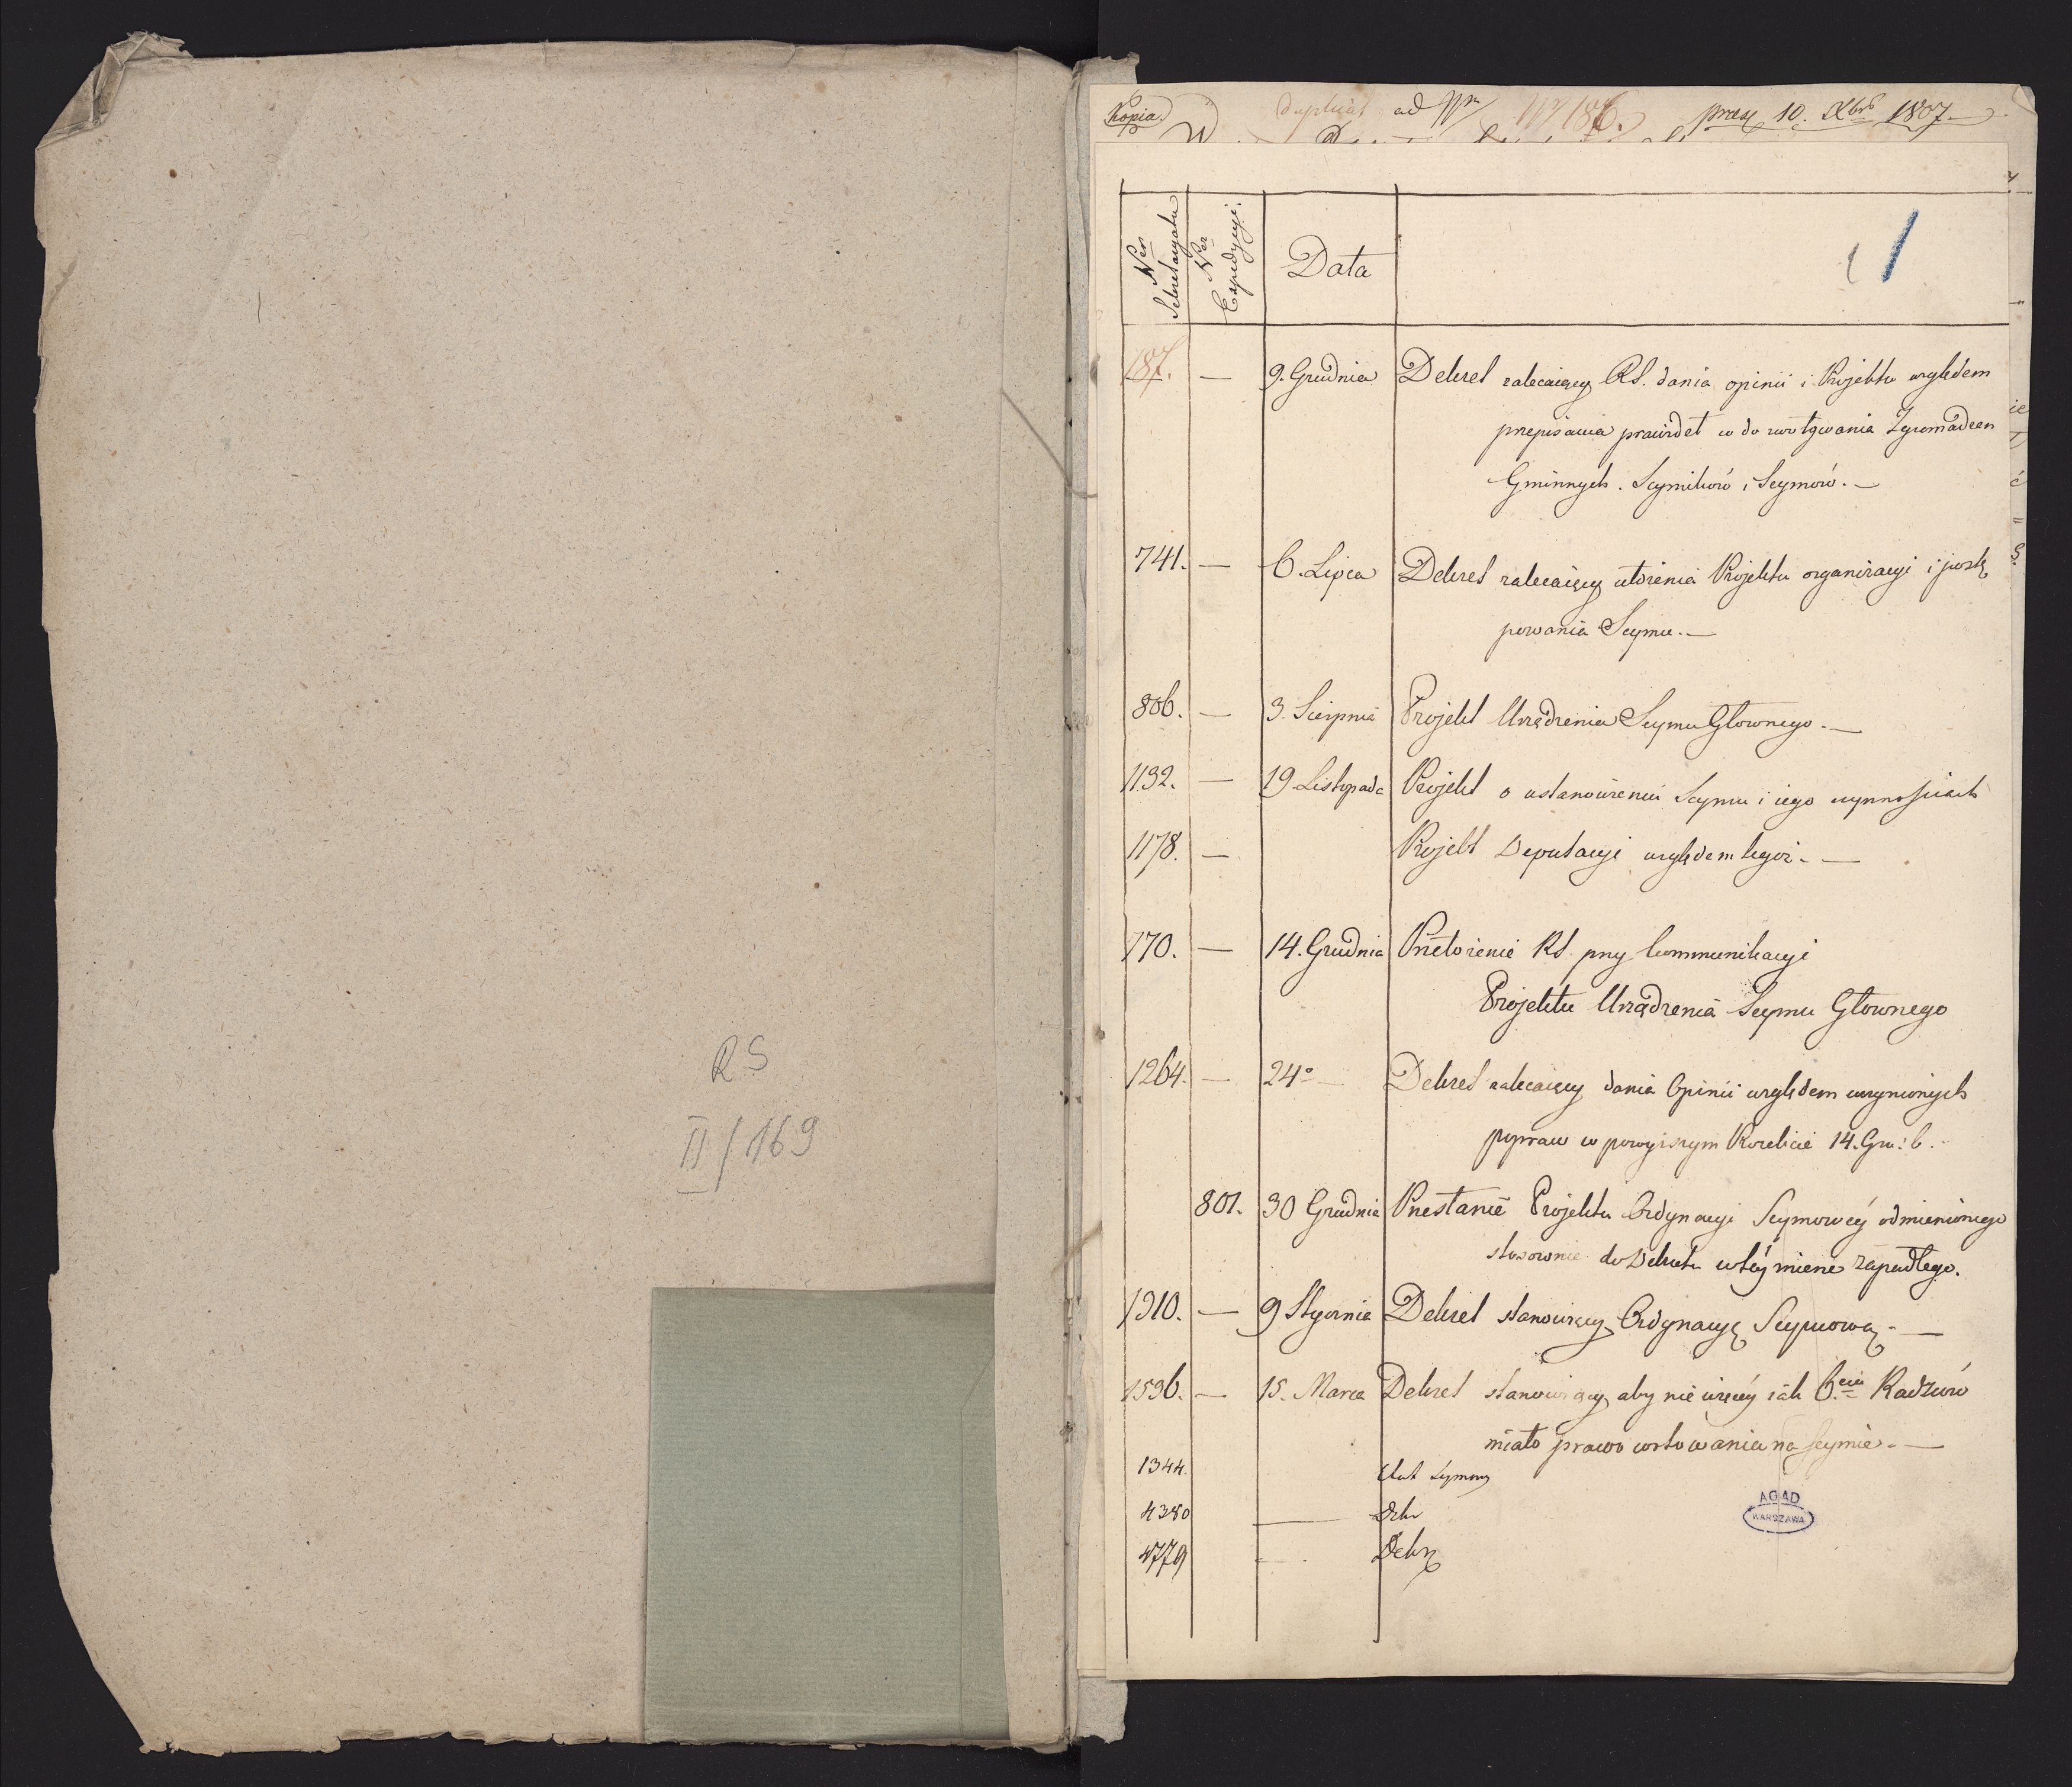 RS
II/169
Kopia
duplicat ad Nrm 186. praes 10. Xbris 1807.
1
Ner Sekretaryatu
Ner Expedycyi.
Data
187. — 9. Grudnia Dekret zalecaiący RS. dania opinii i Projektu względem
przepisania prawideł w do zwoływania Zgromadzen
Gminnych. Seymików i Seymów. —
741. — 6. Lipca Dekret zalecaiący ułożenia Projektu organizacyi i postę
powania Seymu. —
806. — 3. Sierpnia Projekt Urządzenia Seymu Głownego. —
1132. — 19 Listopada Projekt o ustanowieniu Seymu i iego czynnościach
1178. — Projekt Deputacyi względem tegoż. —
770. — 14. Grudnia Przełożenie RS. przy kommunikacyi
Projektu Urządzenia Seymu Głownego
1264. — 24o — Dekret zalecaiący dania Opinii względem uczynionych
popraw w powyższym Projekcie 14. Gru: b.
801. 30 Grudnia Przesłanie Projektu Ordynacyi Seymowéy odmienionego
stosownie do Dekretu w téy mierze zapadłego.
1310. — 9 Stycznia Dekret stanowiący Ordynacyą Seymową. —
1536. — 15. Marca Dekret stanowiący, aby nie więcéy iak 6.ciu Radzców
miało prawo wotowania na Seymie. —
1344.
4380 — Dekr
4779 — Dekr
AGAD
WARSZAWA